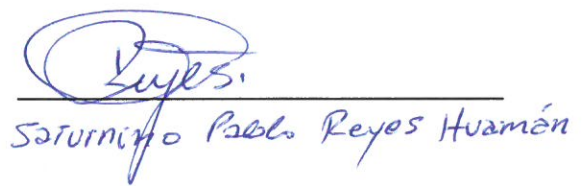 Reyes.
Saturnino Pablo Reyes Huamán